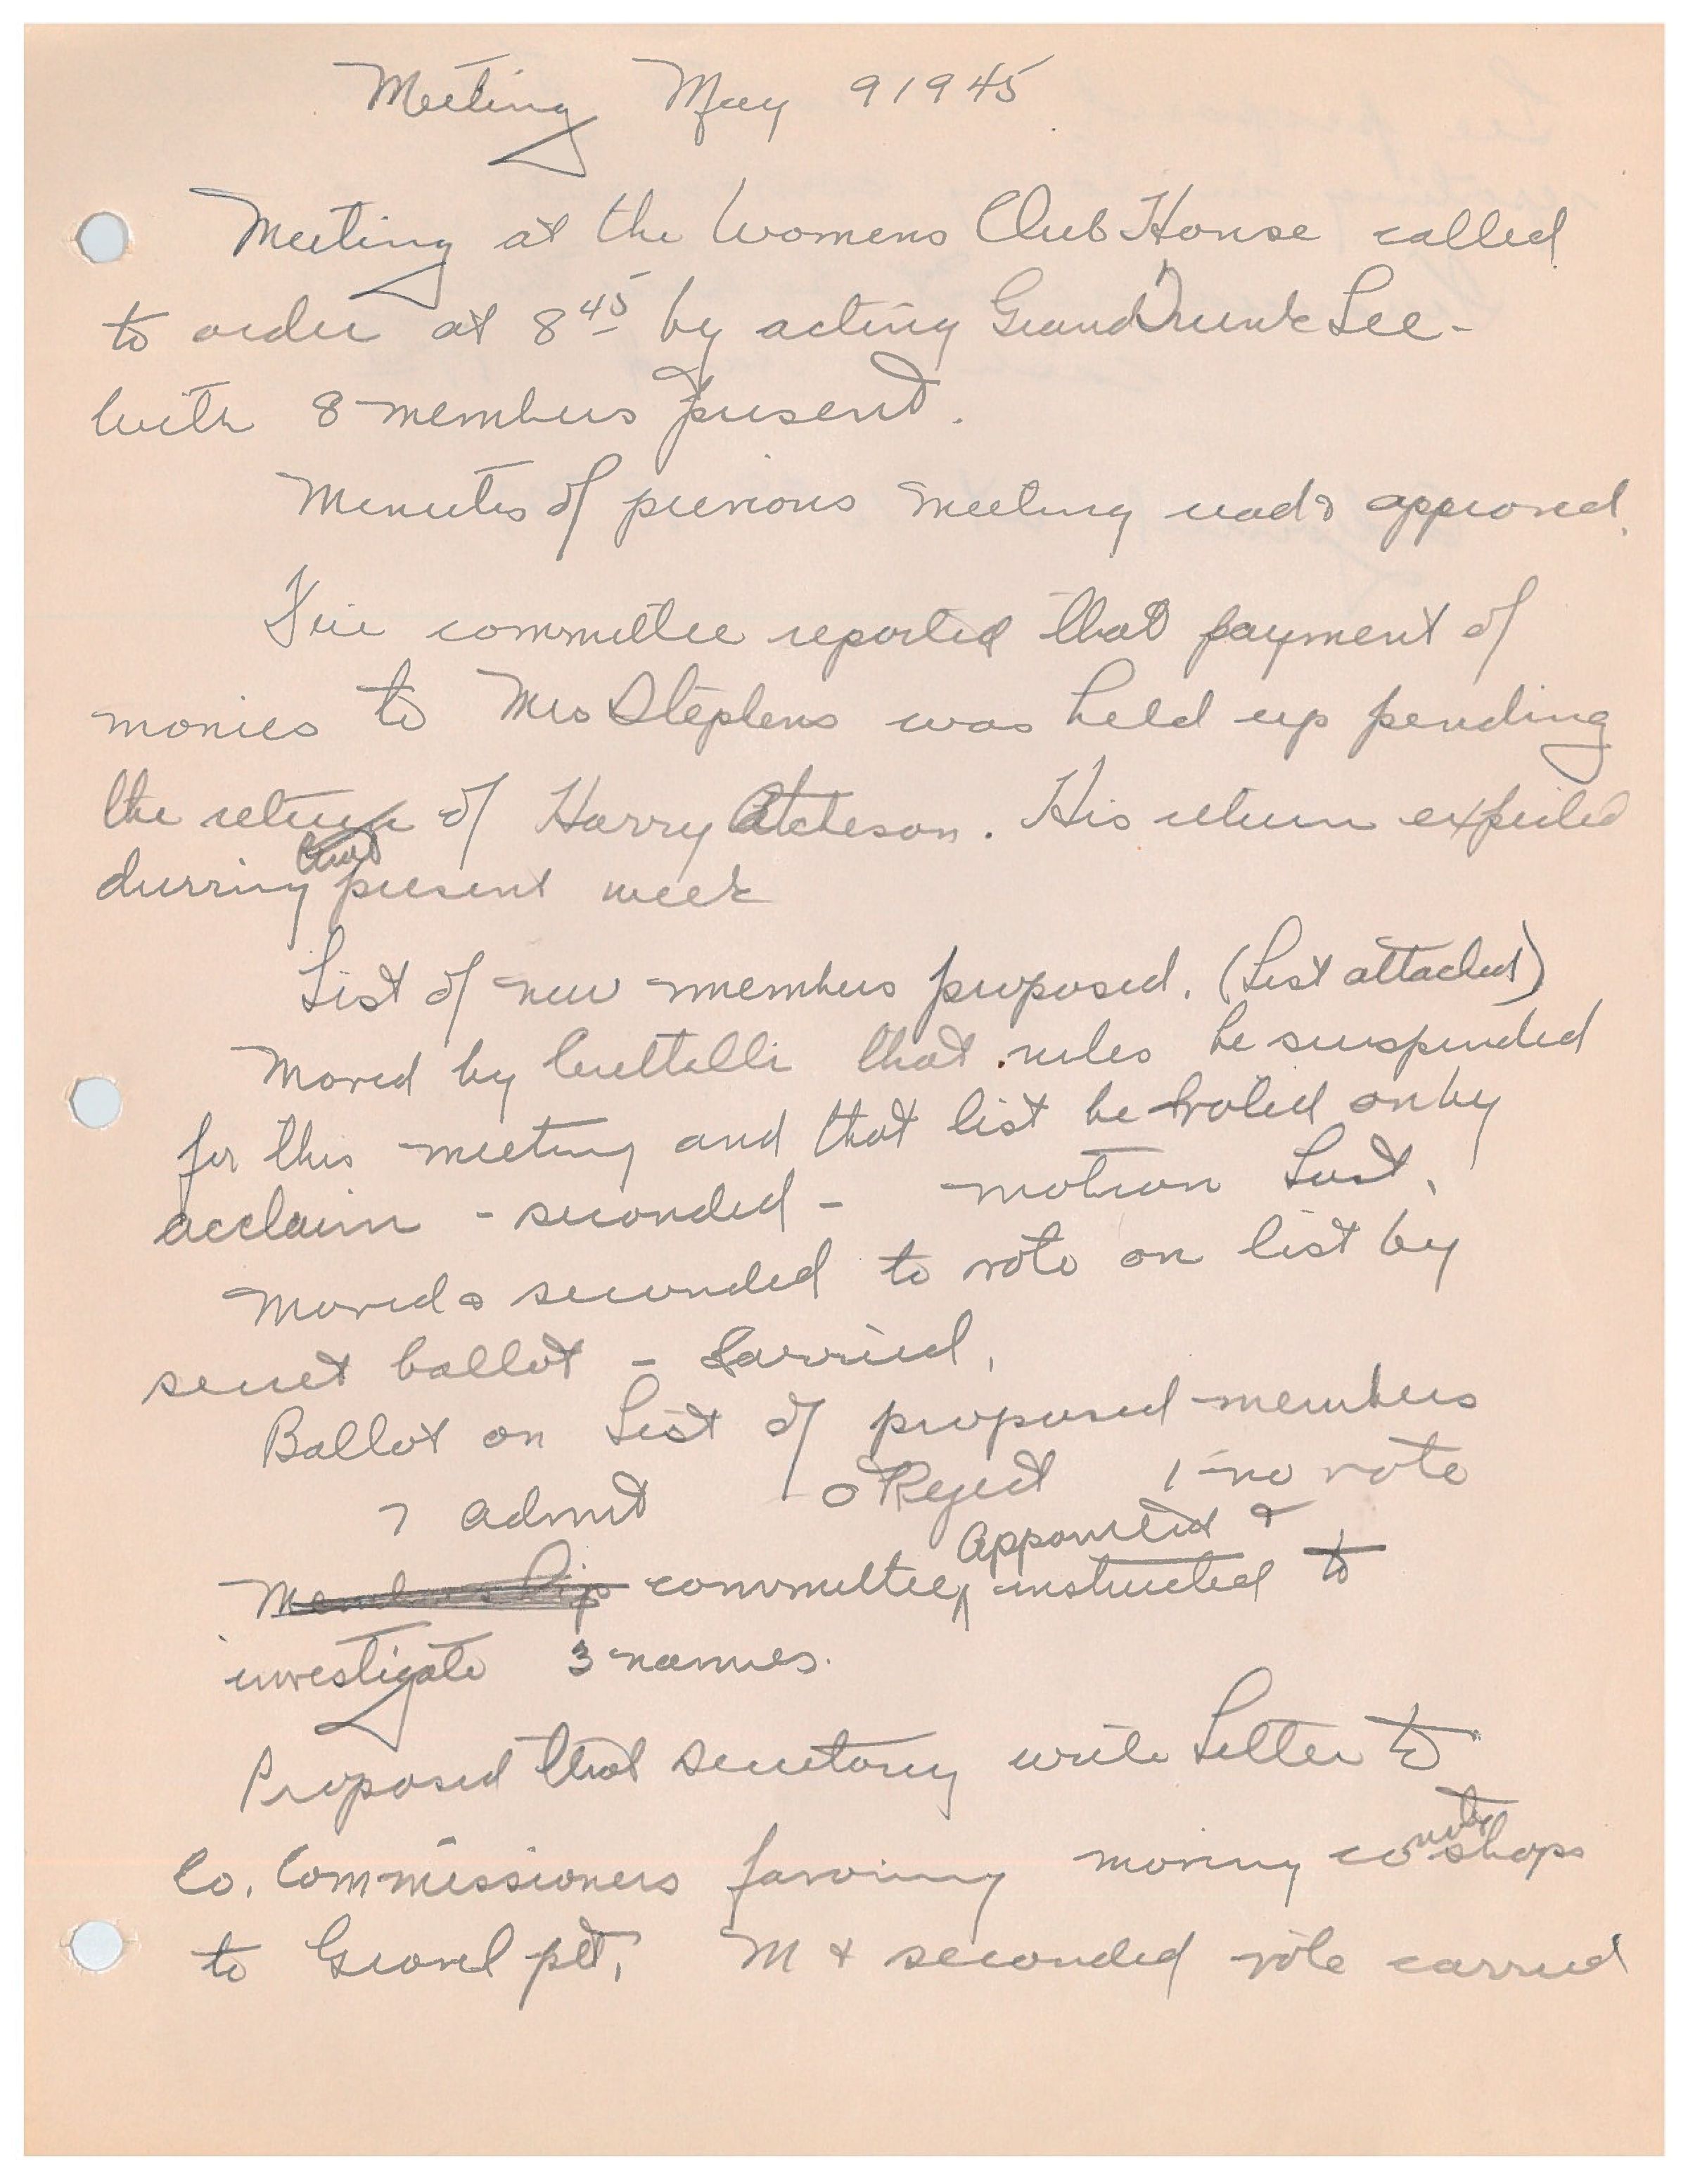 Meeting May 9 1945
Meeting at the Womens Club House called
to order at 8 45 by acting Grand Drunk Lee -
with 8 members present.
Minutes of previous meeting read & approved.
Fire committee reported that payment of
monies to Mrs Stephens was held up pending
the return of Harry Atcheson. His return expected
durring present week
List of new members proposed. (List attached)
Moved by that rules be suspended
for this meeting and that list be voted on by
acclaim - seconded - motion Lost.
Moved & seconded to vote on list by
secret ballot - Carried.
Ballot on List of proposed members
7 admit 0 Reject 1 - no vote
Appointed &
Membership committee instructed to
investigate 3 names.
Proposed that secretary write Letter to
Co. Commissioners favoring moving co shops
to Gravel pit. M & seconded vote carried